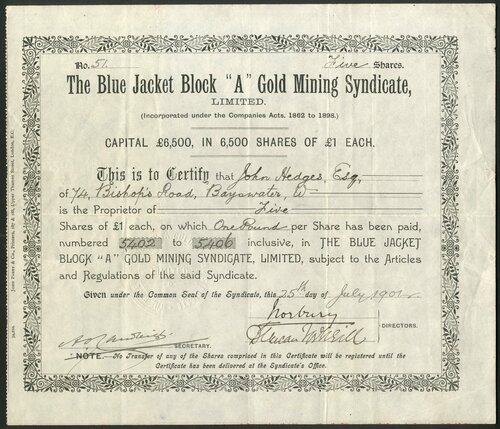 No. 51. Five Shares.
The Blue Jacket Block "A" Gold Mining Syndicate,
LIMITED.
(Incorporated under the Companies Acts, 1862 to 1898.)
CAPITAL £6,500, IN 6,500 SHARES OF £1 EACH.
This is to Certify that John Hedges, Esq,
of 74, Bishop's Road, Bayswater, W
is the Proprietor of Five
Shares of £1 each, on which One Pound per Share has been paid,
numbered 5402 to 5406 inclusive, in THE BLUE JACKET
BLOCK "A" GOLD MINING SYNDICATE, LIMITED, subject to the Articles
and Regulations of the said Syndicate.
Given under the Common Seal of the Syndicate, this 25th day of July 1901
Norbury
DIRECTORS.
SECRETARY.
NOTE. No Transfer of any of the Shares comprised in this Certificate will be registered until the
Certificate has been delivered at the Syndicate's Office.